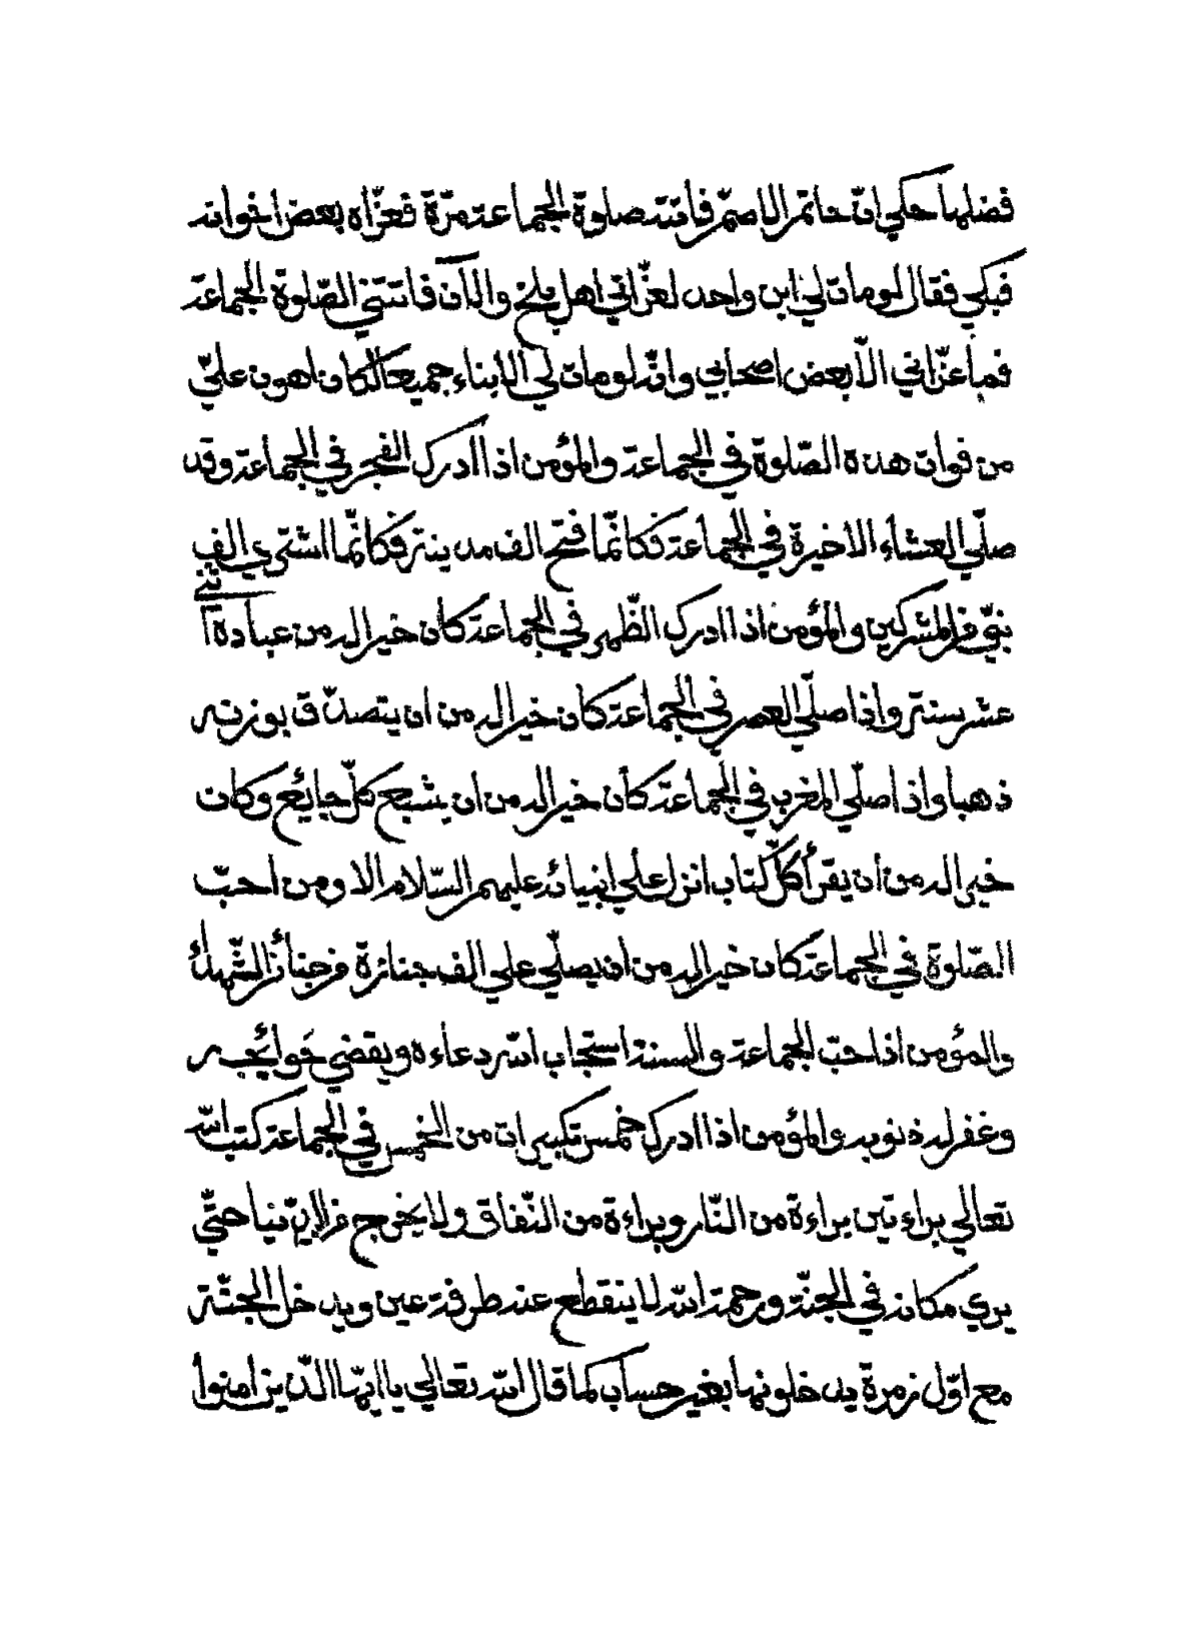 فضلها حكي انّ حاتم الاصمّ فاتته صلوة الجماعة مرّة فعزّاه بعض اخوانه
فبكي فقال لو مات لي ابن واحد لعزّاني اهل بلخ والآن فاتتني الصّلوة الجماعة
فما عزّاني الّا بعض اصحابي وانّه لو مات لي الابناء جميعا لكان اهون عليّ
من فوات هذه الصّلوة في الجماعة والمؤمن اذا ادرك الفجر في الجماعة وقد
صلّي العشاء الاخيرة في الجماعة فكانّما فتح الف مدينة فكانّما اشتري الف
من المشركين والمؤمن اذا ادرك الظّهر في الجماعة كان خيرا له من عبادة اثني
عشر سنة واذا صلّي العصر في الجماعة كان خيرا له من ان يتصدّق بوزنه
ذهبا واذا صلّي المغرب في الجماعة كان خيرا له من ان يشبع كلّ جايع وكان
خيرا له من ان يقرأ كلّ كتاب انزل علي انبيائه عليهم السّلام الا ومن احبّ
الصّلوة في الجماعة كان خيرا له من ان يصلّي علي الف جنازة من جنائز الشّهداء
والمؤمن اذا حبّ الجماعة والسنة استجاب الله دعاءه ويقضي حوائجه
وغفر له ذنوبه والمؤمن اذا ادرك خمس تكبيرات من الخمس في الجماعة كتب الله
تعالي براءتين براءة من النّار وبراءة من النّفاق ولا يخرج من الدّنيا حتّي
يري مكانه في الجنّة ورحمة الله لا ينقطع عنه طرفة عين ويدخل الجنّة
مع اوّل زمرة يدخلونها بغير حساب كما قال الله تعالي يا ايّها الّذين امنوا